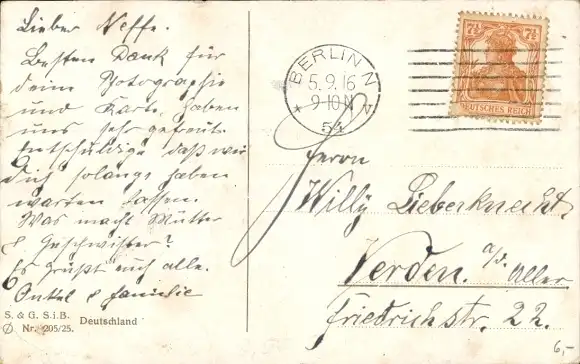 Lieber Neffe.
Besten Dank für
deine Photographie
und Karte, haben
uns sehr gefreut.
Entschuldige daß wir
Dich solange haben
warten lassen.
Was macht Mutter
& Geschwister?
Es grüßt euch alle.
Onkel & Familie
S. & G. S. i. B.
Nr. 205/25. Deutschland
BERLIN N
5.9.16
9-10 N
* 54
7½ 7½
DEUTSCHES REICH
Herrn
Willy Lieberknecht.
Verden. a/d. Aller
Friedrichstr. 22.
6,-